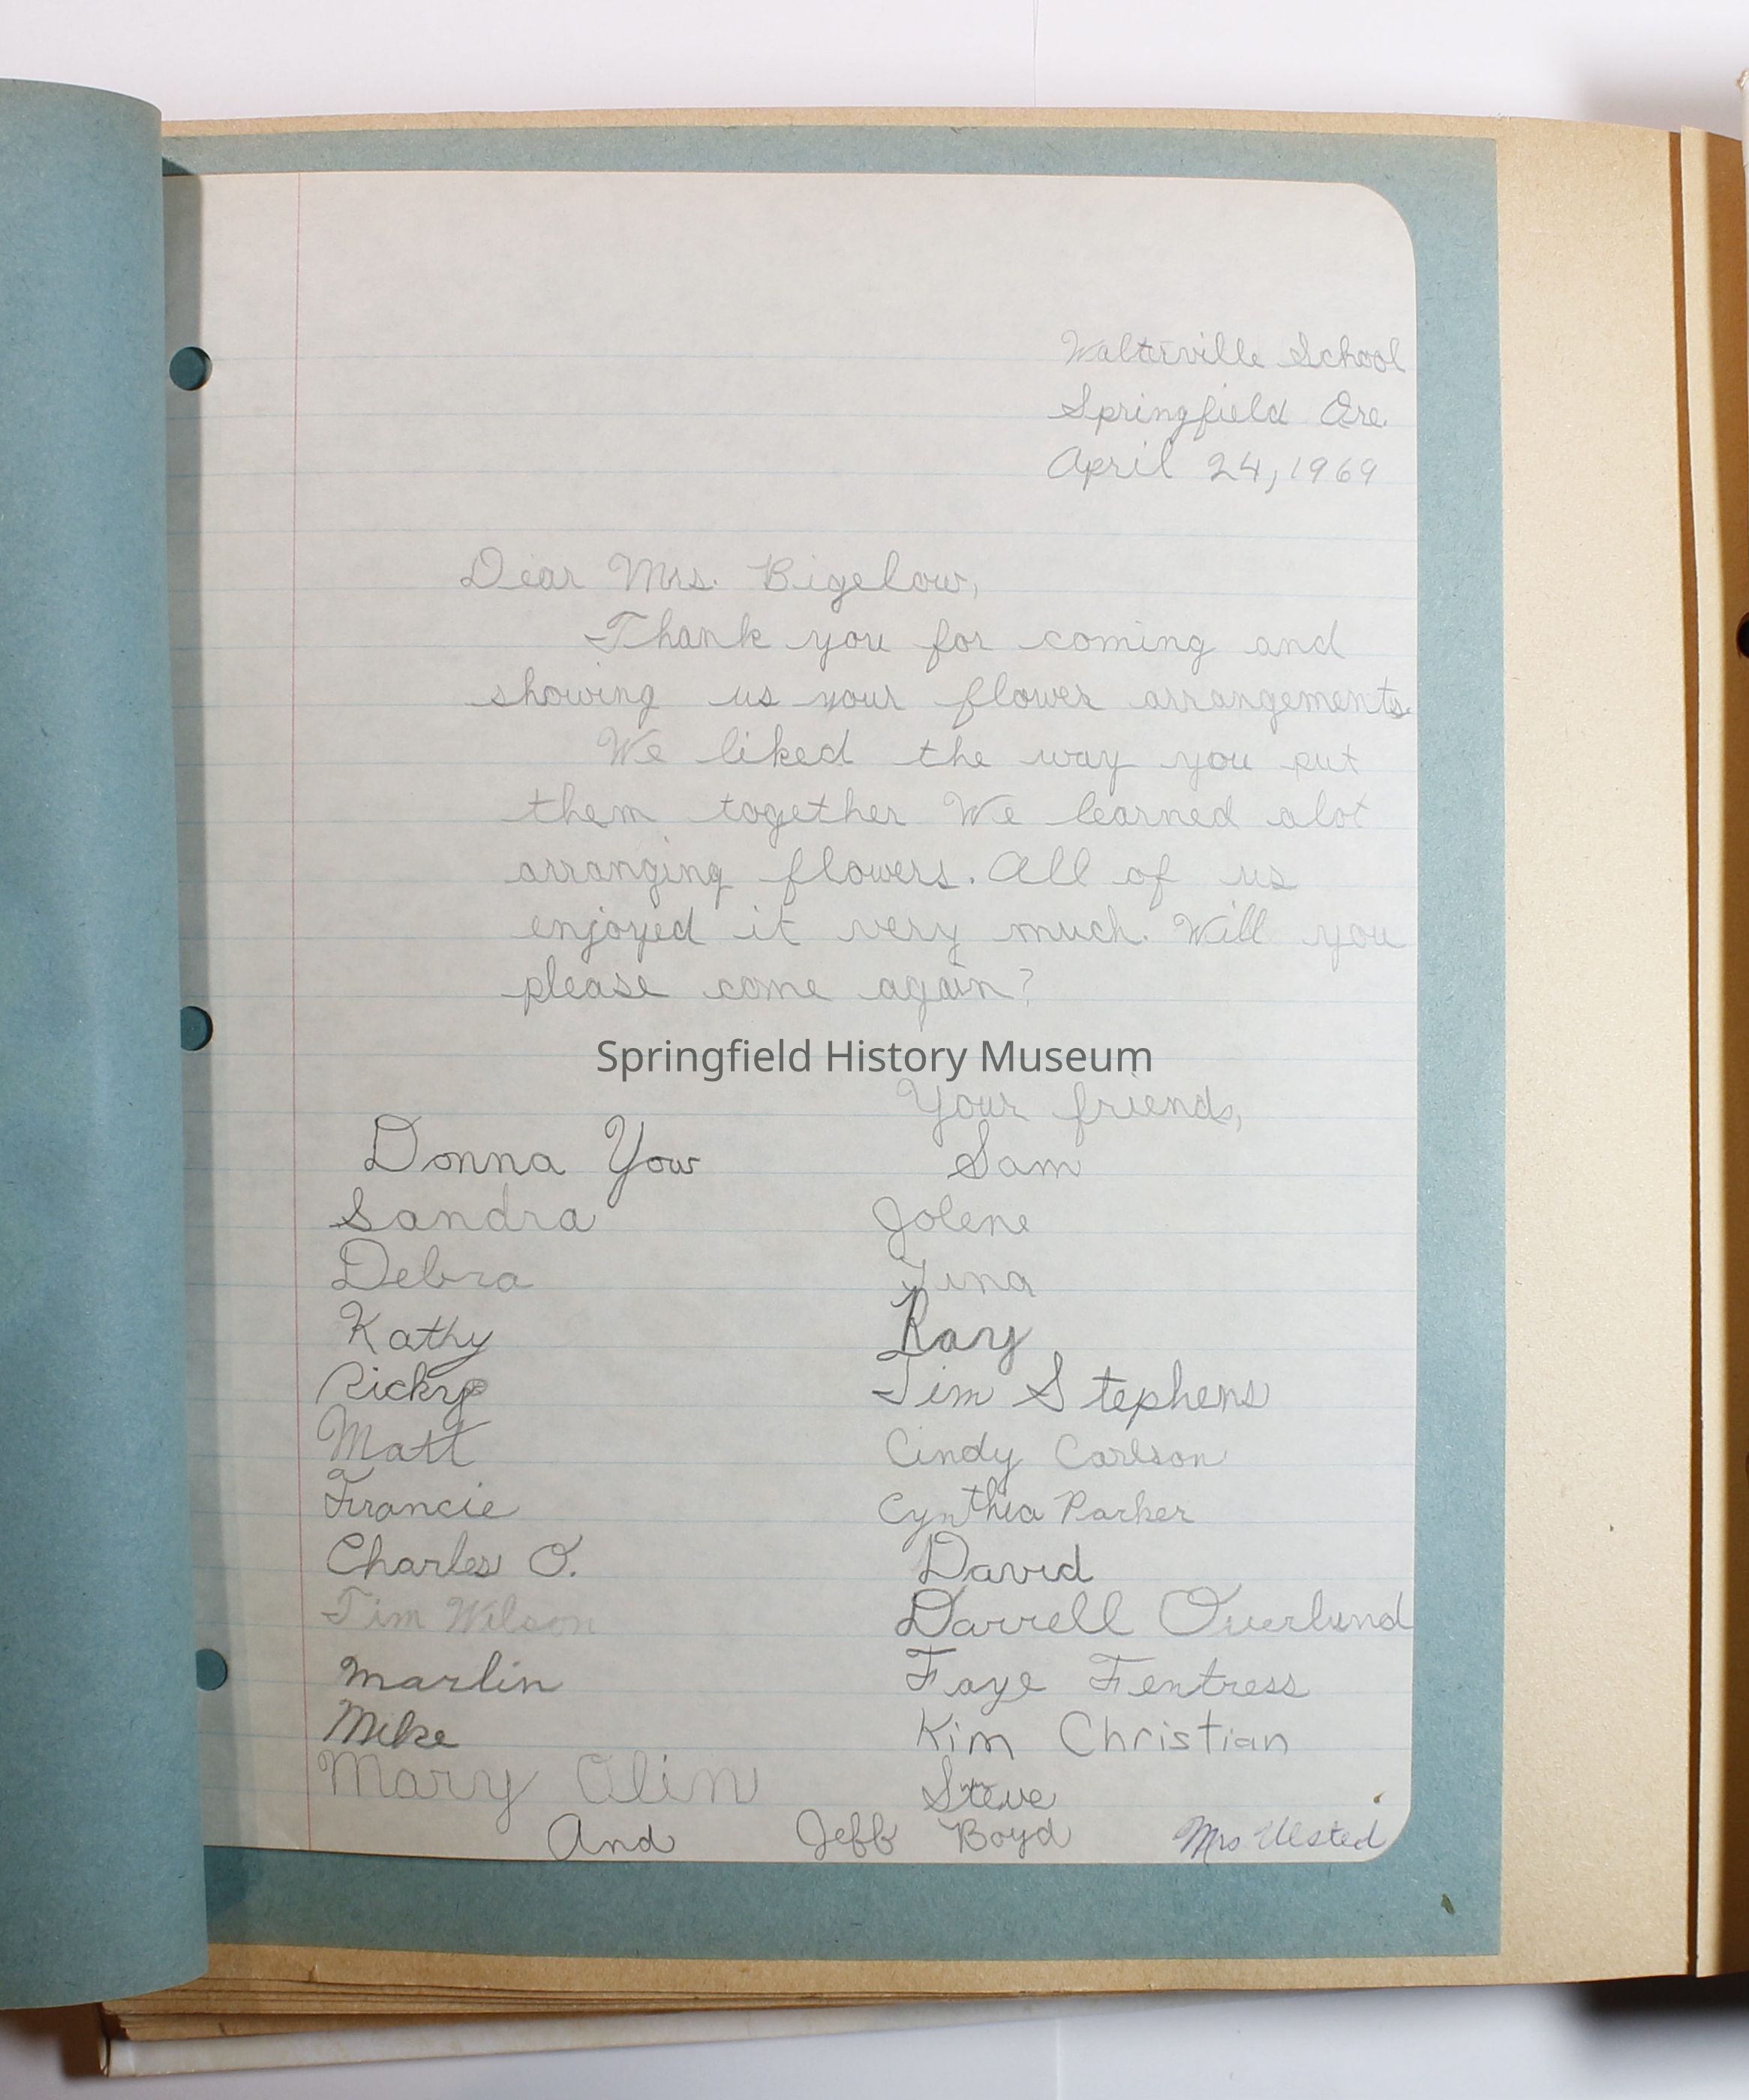 Walterville School
Springfield Ore.
April 24, 1969
Dear Mrs. Bigelow,
Thank you for coming and
showing us your flower arrangements.
We liked the way you put
them together We learned alot
arranging flowers. All of us
enjoyed it very much. Will you
please come again?
Springfield History Museum
Your friends,
Donna Yow
Sandra
Debra
Kathy
Ricky
Matt
Francie
Charles O.
Tim Wilson
Marlin
Mike
Mary Olin
Sam
Jolene
Tina
Kay
Tim Stephens
Cindy Carlson
Cynthia Parker
David
Darrell Overlund
Faye Fentress
Kim Christian
Steve
And Jeff Boyd Mrs Ulsted